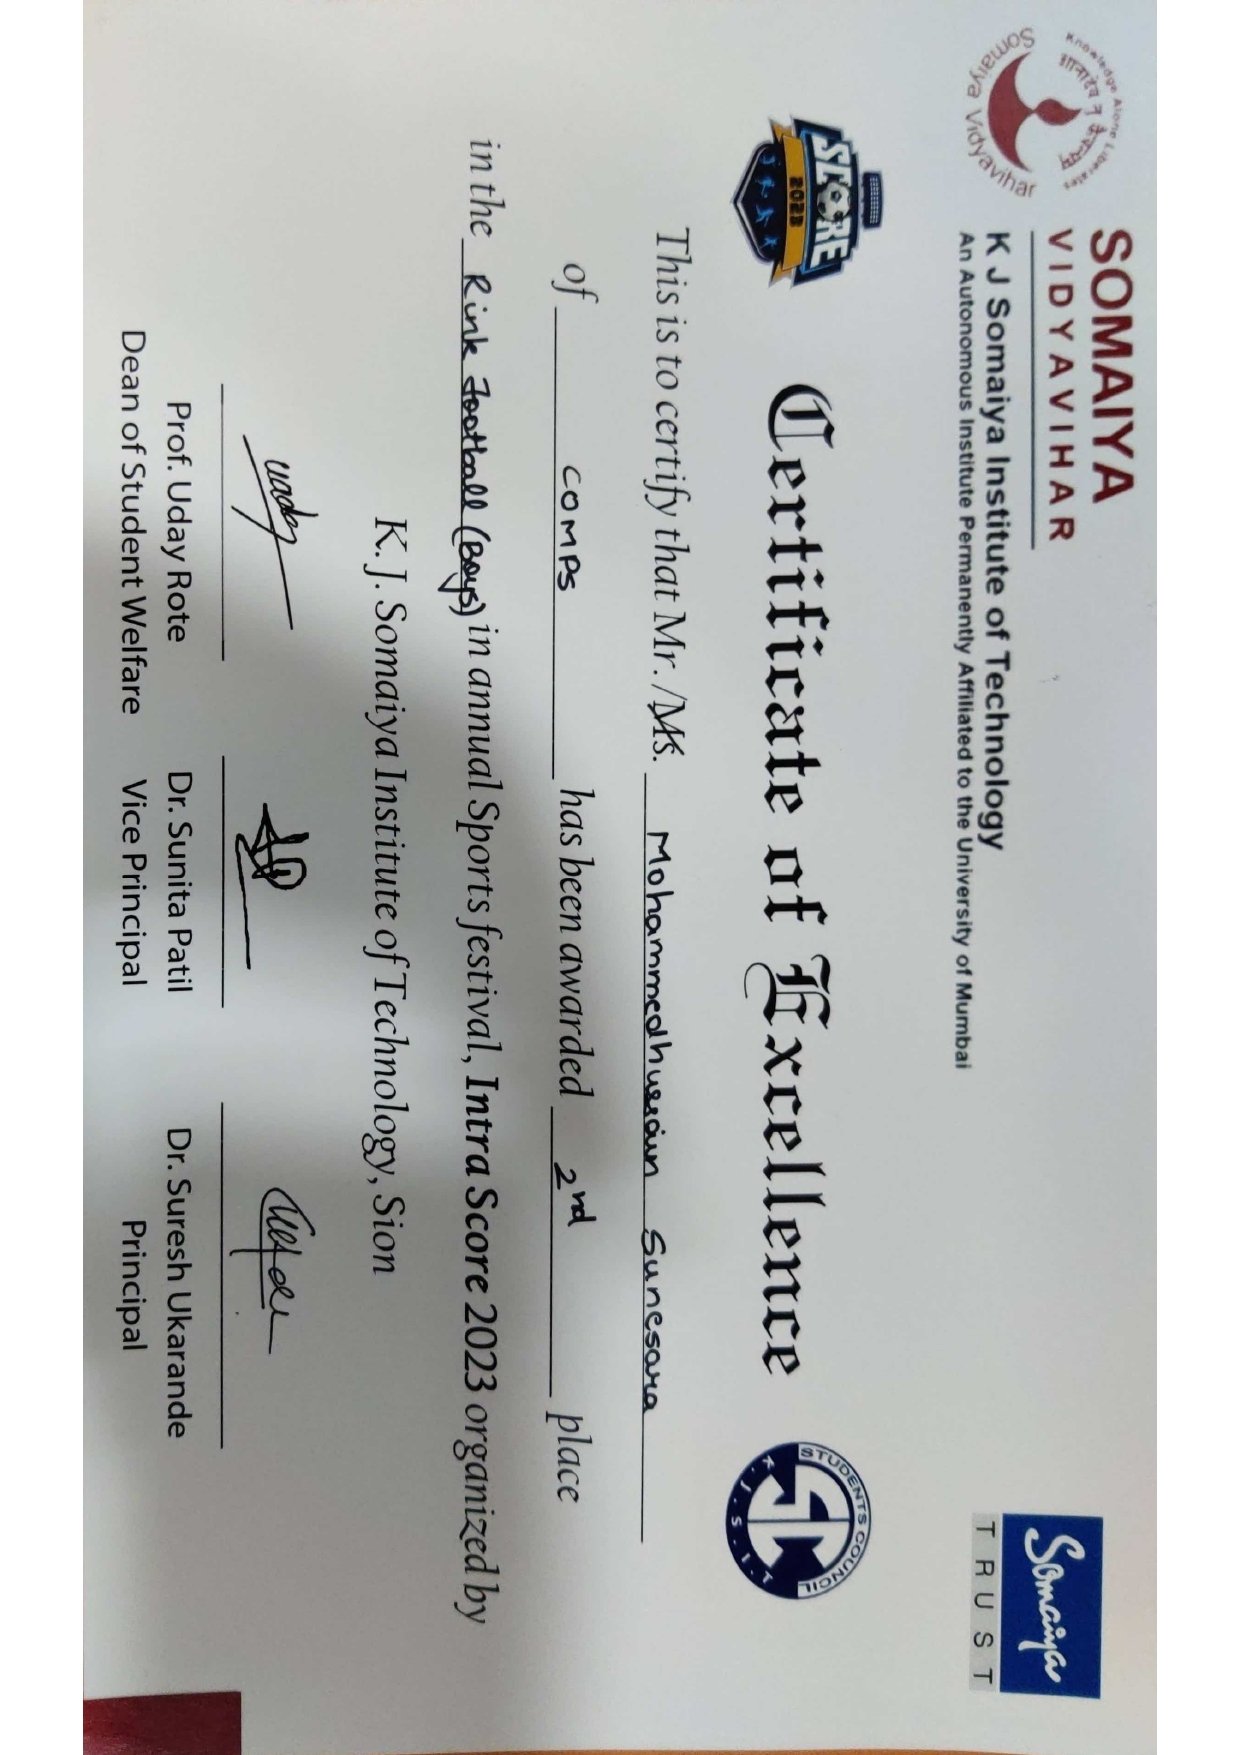 Knowledge Alone Liberates
ज्ञानादेव तु कैवल्यम्
Somaiya Vidyavihar
SOMAIYA
VIDYAVIHAR
K J Somaiya Institute of Technology
An Autonomous Institute Permanently Affiliated to the University of Mumbai
Somaiya
TRUST
SCORE
2023
Certificate of Excellence
STUDENTS COUNCIL
SC
K.J.S.I.T
This is to certify that Mr. /Ms. Mohammedhussain Sunesara
of COMPS has been awarded 2nd place
in the Rink Football (Boys) in annual Sports festival, Intra Score 2023 organized by
K. J. Somaiya Institute of Technology, Sion
Prof. Uday Rote
Dean of Student Welfare
Dr. Sunita Patil
Vice Principal
Dr. Suresh Ukarande
Principal